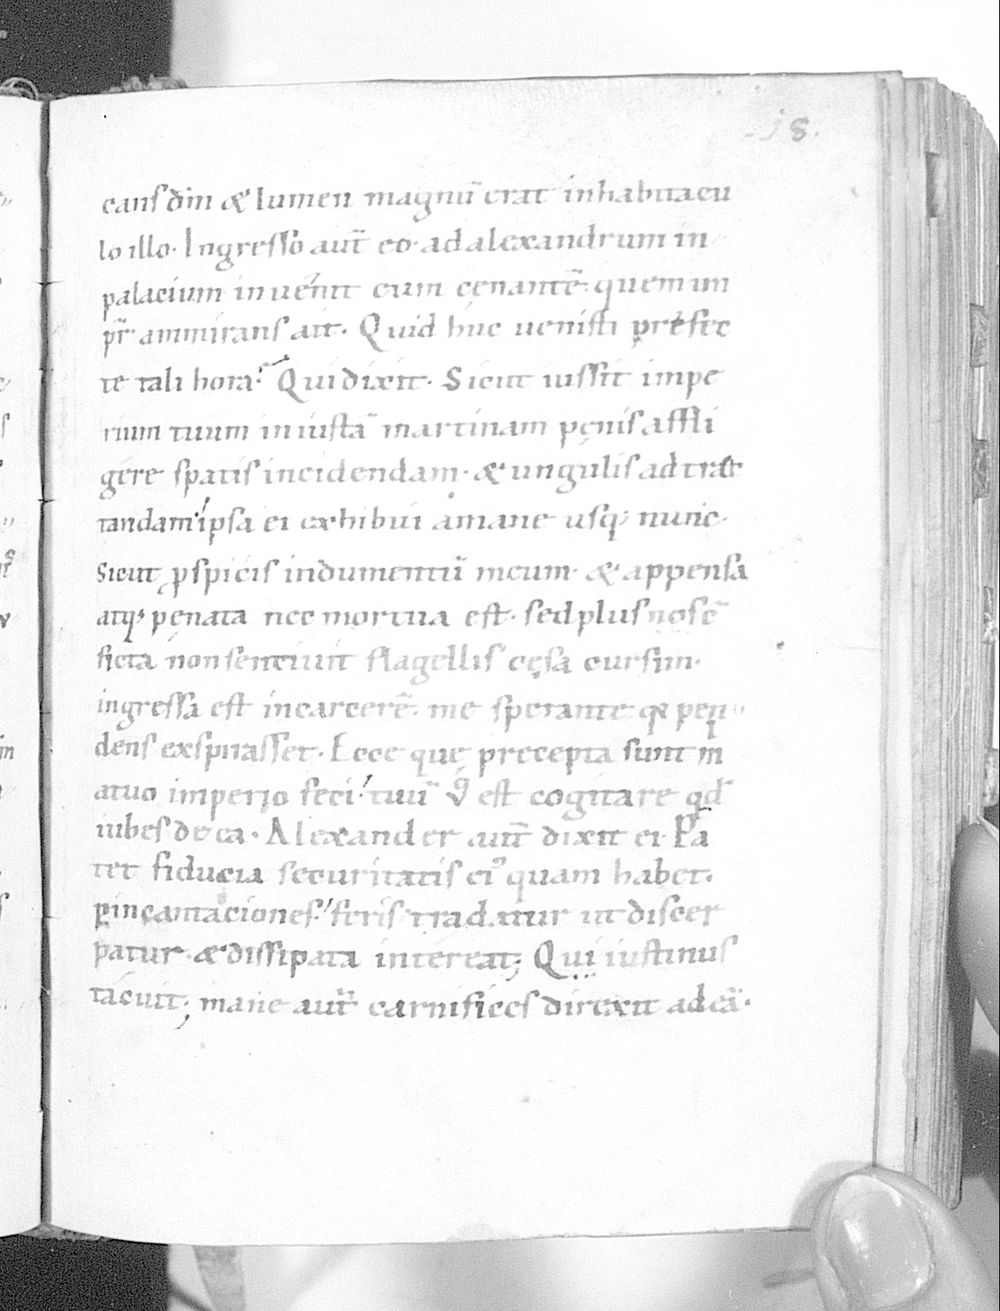 18.
cans dm̄ & lumen magnū erat inhabitacu
lo illo. Ingresso aut̄ eo. ad alexandrum in
palacium inuenit eum cenantē. quem im
pr̄ ammirans ait. Quid huc uenisti prefec
te tali hora? Qui dixit. Sicut iussit impe
rium tuum iniustā martinam penis affli
gere spatis incidendam. & ungulis ad trac
tandam ipsa ei exhibui a mane usq; nunc.
Sicut ꝑspicis indumentū meum. & appensa
atq; penata nec mortua est. sed plus
ficta non sentiuit flagellis cęsa cursim.
ingressa est incarcerē. me sperante qđ pen
dens exspirasset. Ecce quę precepta sunt m
a tuo imperio feci. tuū ū est cogitare qd̄
iubes de ea. Alexander aut̄ dixit ei. Pa
tet fiducia securitatis ei' quam habet.
ꝑ incantaciones. feris tradatur ut discer
patur. & dissipata intereat; Qui iustinus
tacuit; mane aut̄ carnifices direxit ad eā.